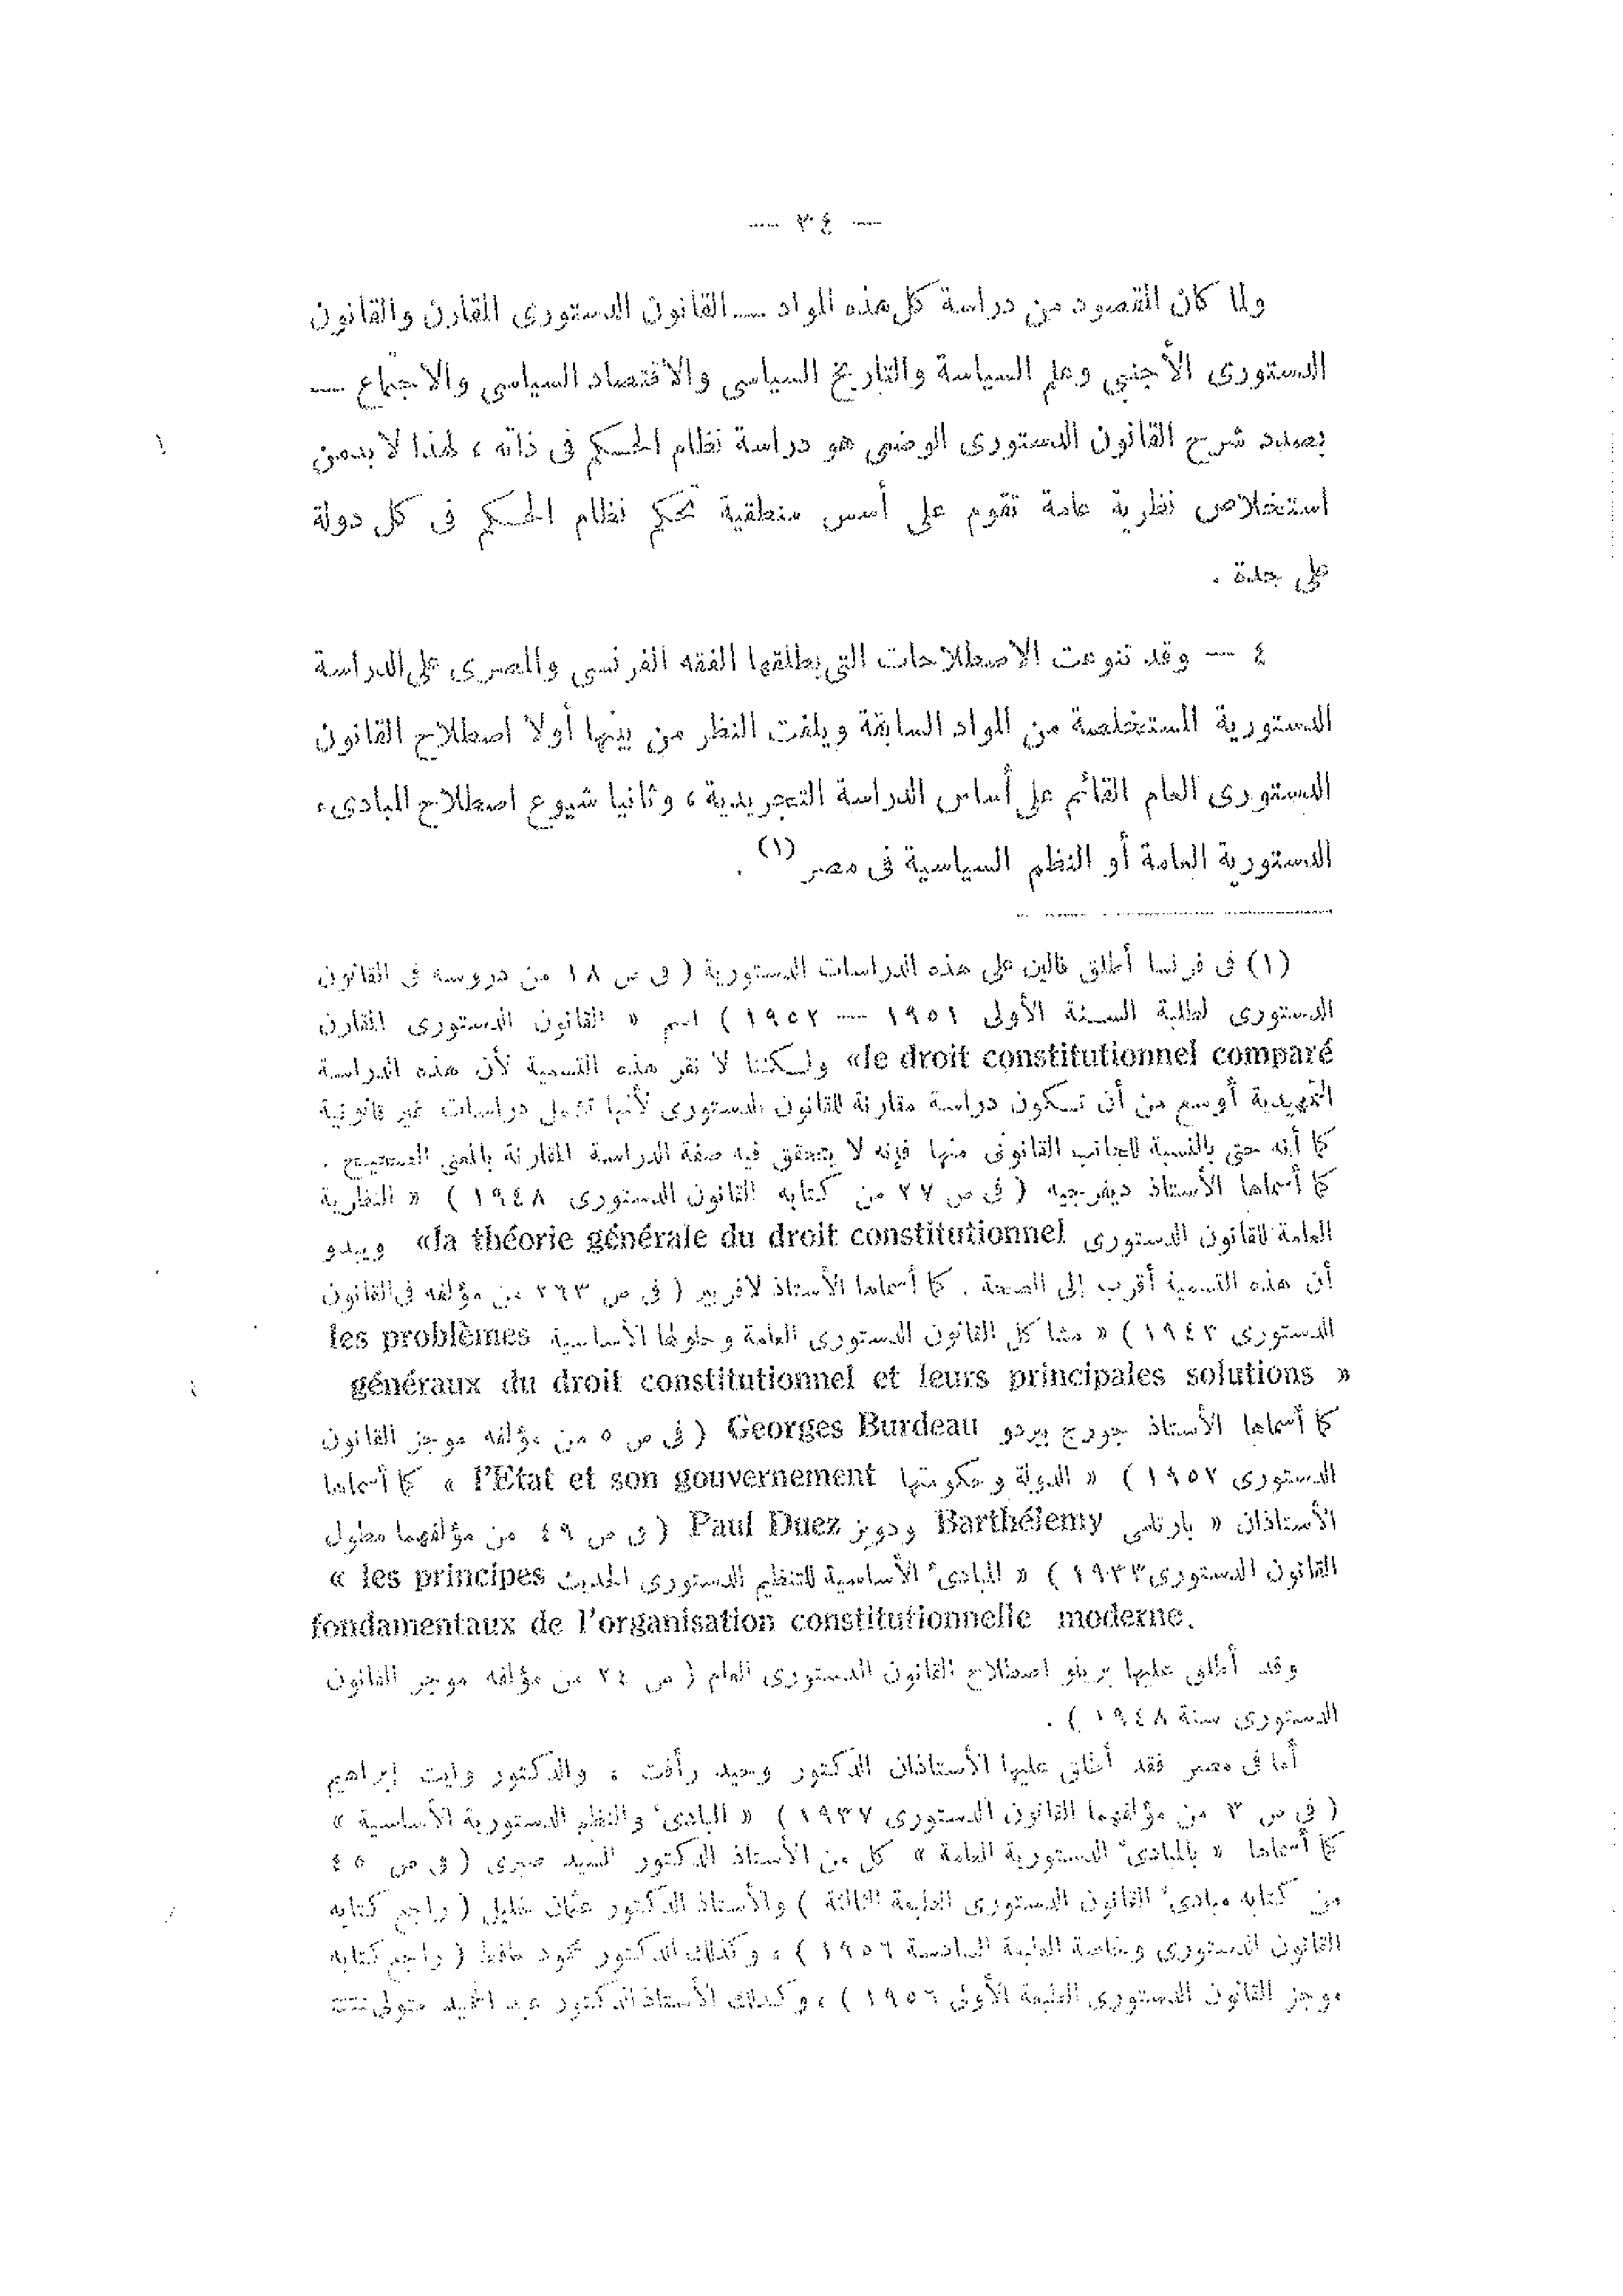 — ٣٤ —
ولما كان المقصود من دراسة كل هذه المواد — القانون الدستورى المقارن والقانون
الدستورى الأجنبي وعلم السياسة والتاريخ السياسى والاقتصاد السياسى والاجتماع —
بصدد شرح القانون الدستورى الوضعى هو دراسة نظام الحكم فى ذاته ، لهذا لا بد من
استخلاص نظرية عامة تقوم على أسس منطقية تحكم نظام الحكم فى كل دولة
على حدة .
٤ — وقد تنوعت الاصطلاحات التى يطلقها الفقه الفرنسى والمصرى على الدراسة
الدستورية المستخلصة من المواد السابقة ويلفت النظر من بينها أولا اصطلاح القانون
الدستورى العام القائم على أساس الدراسة التجريدية ، وثانيا شيوع اصطلاح المبادىء
الدستورية العامة أو النظم السياسية فى مصر (١) .
(١) فى فرنسا أطلق فالين على هذه الدراسات الدستورية ( فى ص ١٨ من دروسه فى القانون
الدستورى لطلبة السنة الأولى ١٩٥١ — ١٩٥٢ ) اسم « القانون الدستورى المقارن
le droit constitutionnel comparé» ولكننا لا نقر هذه التسمية لأن هذه الدراسة
التمهيدية أوسع من أن تكون دراسة مقارنة للقانون الدستورى لأنها تشمل دراسات غير قانونية
كما أنه حتى بالنسبة للجانب القانونى منها فإنه لا يتحقق فيه صفة الدراسة المقارنة بالمعنى الصحيح .
كما أسماها الأستاذ ديفرجيه ( فى ص ٢٧ من كتابه القانون الدستورى ١٩٤٨ ) « النظرية
العامة للقانون الدستورى la théorie générale du droit constitutionnel» ويبدو
أن هذه التسمية أقرب إلى الصحة . كما أسماها الأستاذ لافريير ( فى ص ٢٦٣ من مؤلفه فى القانون
الدستورى ١٩٤٣ ) « مشاكل القانون الدستورى العامة وحلولها الأساسية les problèmes
généraux du droit constitutionnel et leurs principales solutions »
كما أسماها الأستاذ جورج بيردو Georges Burdeau ( فى ص ٥ من مؤلفه موجز القانون
الدستورى ١٩٥٢ ) « الدولة وحكومتها l'Etat et son gouvernement » كما أسماها
الأستاذان « بارتلمى Barthélemy ودويز Paul Duez ( فى ص ٤٩ من مؤلفهما مطول
القانون الدستورى ١٩٣٣ ) « المبادئ الأساسية للتنظيم الدستورى الحديث les principes »
fondamentaux de l'organisation constitutionnelle moderne.
وقد أطلق عليها بريلو اصطلاح القانون الدستورى العام ( ص ٢٤ من مؤلفه موجز القانون
الدستورى سنة ١٩٤٨ ) .
أما فى مصر فقد أطلق عليها الأستاذان الدكتور وحيد رأفت ، والدكتور وايت إبراهيم
( فى ص ٣ من مؤلفهما القانون الدستورى ١٩٣٧ ) « المبادئ والنظم الدستورية الأساسية »
كما أسماها « بالمبادئ الدستورية العامة » كل من الأستاذ الدكتور السيد صبرى ( فى ص ٤٥
من كتابه مبادئ القانون الدستورى الطبعة الثالثة ) والأستاذ الدكتور عثمان خليل ( راجع كتابه
القانون الدستورى وبخاصة الطبعة السادسة ١٩٥٦ ) ، وكذلك الدكتور محمود حافظ ( راجع كتابه
موجز القانون الدستورى الطبعة الأولى ١٩٥٦ ) ، وكذلك الأستاذ الدكتور عبد الحميد متولى